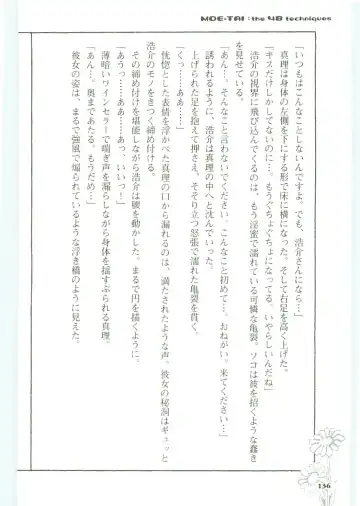 MOE-TAI : the 48 techniques
「いつもはこんなことしないんですよ。でも、浩介さんになら…」
真理は身体の左側を下にする形で床に横になった。そして右足を高く上げた。
「キスだけしかしてないのに…。もうぐちょぐちょになってる。いやらしいんだね」
浩介の視界に飛び込んでくるのは、もう淫蜜で濡れている可憐な亀裂。ソコは彼を招くような蠢き
を見せている。
「あん…。そんなこと言わないでください。こんなこと初めて…。おねがい。来てください…」
誘われるように、浩介は真理の中へと沈んでいった。
上げられた足を抱えて押さえ、そそり立つ怒張で濡れた亀裂を貫く。
「くっ……ああ……あっ」
恍惚とした表情を浮かべた真理の口から漏れるのは、満たされたような声。彼女の秘洞はギュッと
浩介のモノをきつく締め付ける。
その締め付けを堪能しながら浩介は腰を動かした。まるで円を描くように。
「あうっ……ああ……あっ、いいっ！」
薄暗いワインセラーで喘ぎ声を漏らしながら身体を揺すぶられる真理。
「あん…。奥まであたる。もうだめ…」
彼女の姿は、まるで強風で煽られているような浮き橋のように見えた。
136